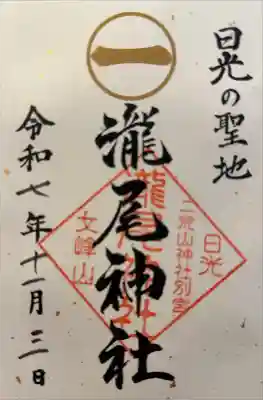 一
日光の聖地
瀧尾神社
令和七年十一月三日
日光
二荒山神社別宮
女峰山